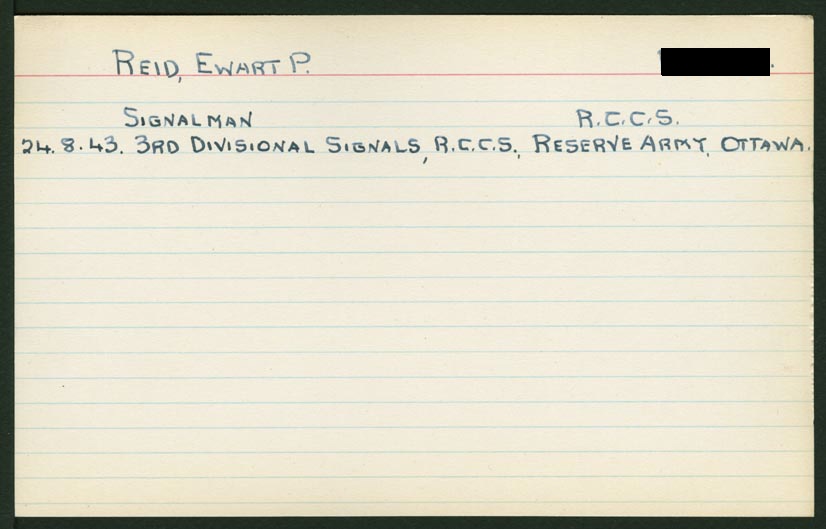 REID, EWART P.
SIGNALMAN R.C.C.S.
24.8.43. 3RD DIVISIONAL SIGNALS, R.C.C.S., RESERVE ARMY, OTTAWA.